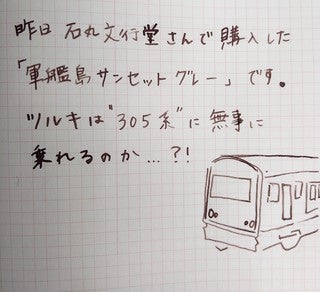 昨日 石丸文行堂さんで購入した
「軍艦島サンセットグレー」です。
ツルキは"305系"に無事に
乗れるのか…?!